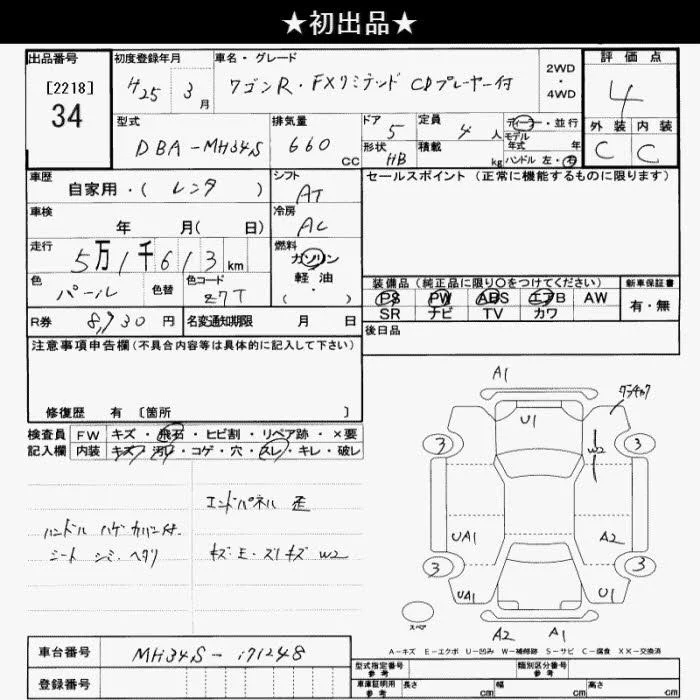 ★初出品★
出品番号
[2218]
34
初度登録年月
H25 3月
車名・グレード
ワゴンR・FXリミテッド CDプレーヤー付
2WD・4WD
評価点
4
外装 内装
C C
型式
DBA-MH34S
排気量
660 cc
ドア 5
形状 HB
定員 4 人
積載 kg
ディーラー・並行
モデル年式 年
ハンドル 左・右
車歴
自家用・( レンタ )
シフト
AT
セールスポイント(正常に機能するものに限ります)
車検
年 月( 日)
冷房
AC
走行
5万1千613km
燃料
ガソリン
軽油
( )
色
パール
色替
色コード
Z7T
装備品(純正品に限り○をつけてください)
PS PW ABS エアB AW
SR ナビ TV カワ
新車保証書
有・無
R券 8,930円
名変通知期限 月 日
後日品
注意事項申告欄(不具合内容等は具体的に記入して下さい)
修復歴 有 〔箇所 〕
検査員記入欄
FW キズ・飛石・ヒビ割・リペア跡・×要
内装 キズ・汚レ・コゲ・穴・スレ・キレ・破レ
ハンドル ハゲ カバー付.
シート シミ・ヘタリ
エンドパネル 歪
キズ・E・スリキズ W2
A1
U1
ワンチャック
W2
3
3
UA1
A2
3
3
UA1
U1
スペア
A2
A1
A-キズ E-エクボ U-凹み W-補修跡 S-サビ C-腐食 XX-交換済
車台番号
MH34S-171248
登録番号
型式指定番号 参考
類別区分番号 参考
車庫証明用 参考
長さ cm
幅 cm
高さ cm